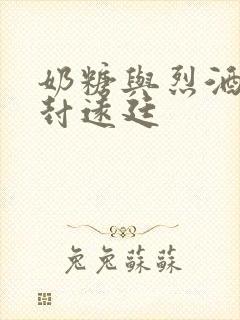 奶糖與烈酒
封遠廷
兔兔蘇蘇